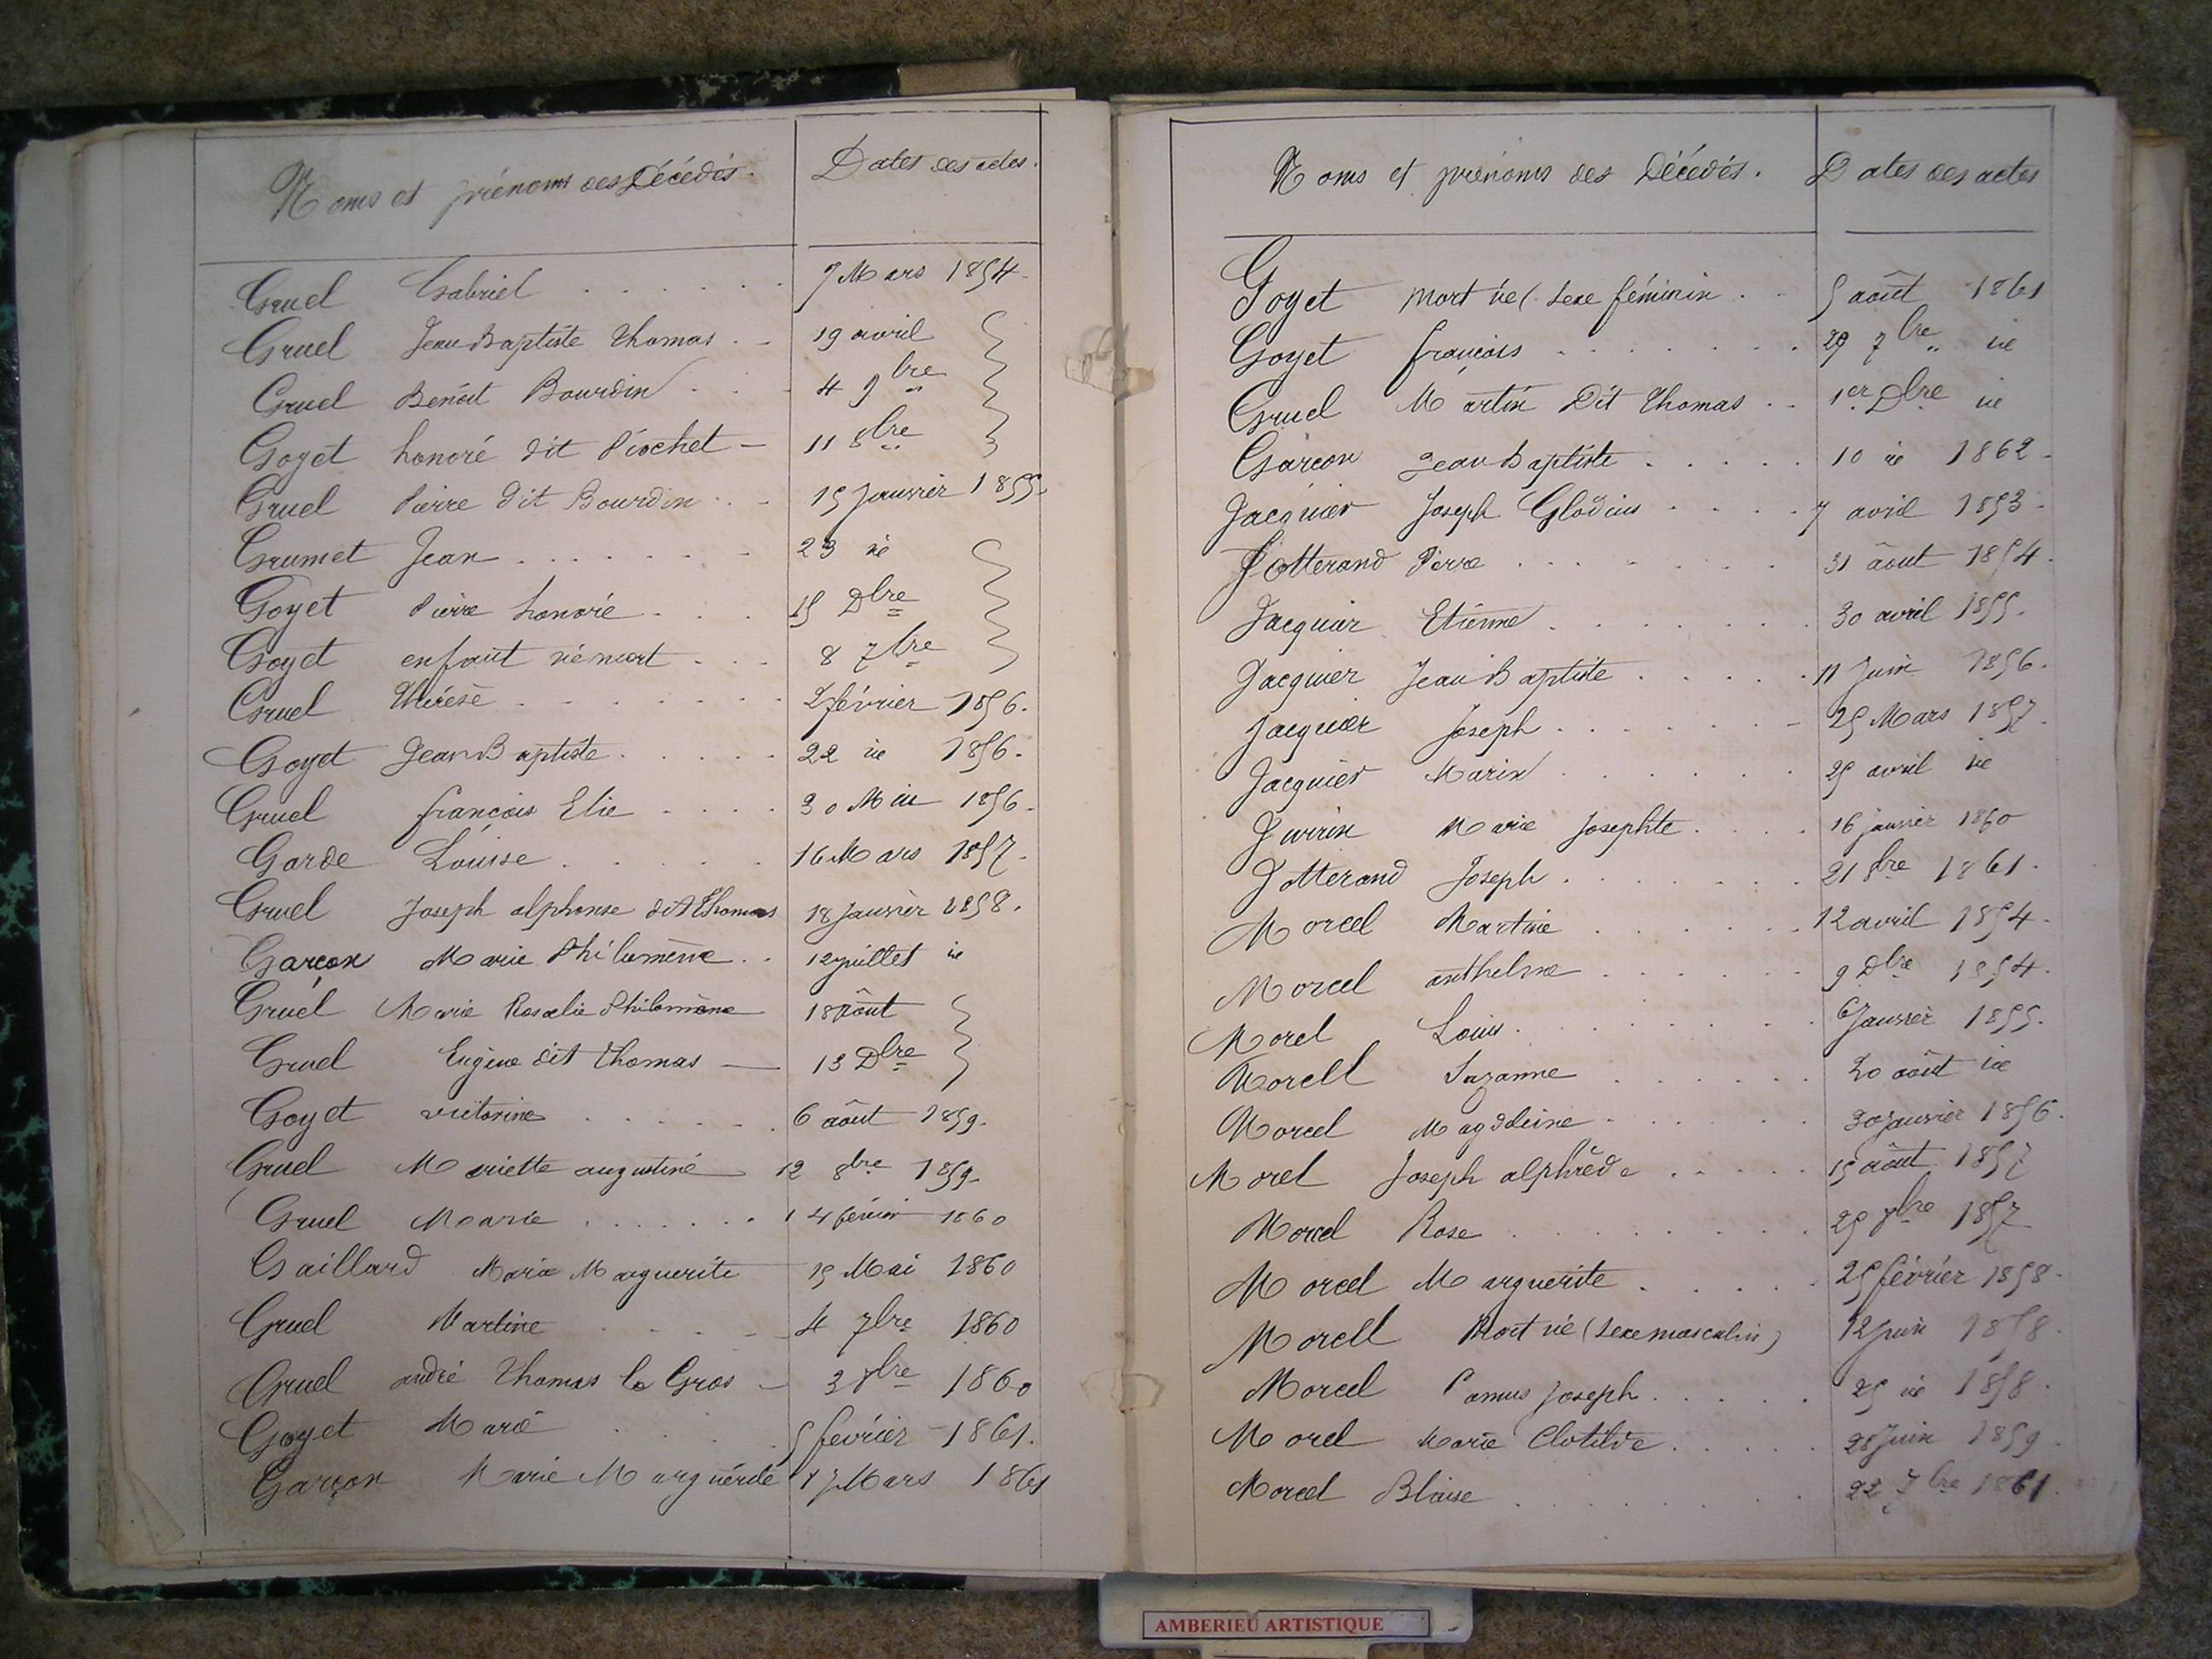 Noms et prénoms des Décédés. Dates des actes.
Gruel Gabriel 7 Mars 1854
Gruel Jean Baptiste Thomas 19 avril
Gruel Benoit Bourdin 4 9bre
Goyet honoré dit Piochet 11 8bre
Gruel Pierre dit Bourdin 15 Janvier 1855.
Grumet Jean 23 ie
Goyet Pierre honoré 15 Dbre
Goyet enfant né mort 8 7bre
Gruel Thérèse 2 février 1856.
Goyet Jean Baptiste 22 ie 1856.
Gruel françois Elie 30 1856.
Garde Louise 16 Mars 1857.
Gruel Joseph alphonse dit Thomas 18 Janvier 1858.
Garçon Marie Philumène 12 juillet ie
Gruel Marie Rosalie Philomène 18 Aôut
Gruel Eugène dit Thomas 13 Dbre
Goyet victorine 6 aôut 1859.
Gruel Mariette augustine 12 8bre 1859.
Gruel Marie 14 février 1860
Gaillard Marie Marguerite 15 Mai 1860
Gruel Martine 4 7bre 1860
Gruel andré Thomas le Gros 3 8bre 1860
Goyet Marie 5 février 1861.
Garçon Marie Marguérite 17 Mars 1861
Noms et prénoms des Décédés. Dates des actes
Goyet Mort né (Sexe féminin 5 août 1861
Goyet françois 29 7bre ie
Gruel Martin Dit Thomas 1er Dbre ie
Garcon Jean Baptiste 10 ie 1862.
Jacquier Joseph Glodius 7 avril 1853.
Jotterand Pierre 31 âout 1854.
Jacquier Etienne 30 avril 1855.
Jacquier Jean Baptiste 11 Juin 1856.
Jacquier Joseph 25 Mars 1857.
Jacquier Marin 25 avril ie
Marie Josephte 16 janvier 1860
Jotterand Joseph 21 8bre 1861.
Morcel Martine 12 avril 1854.
Morcel anthelme 9 Dbre 1854.
Morel Louis 6 Janvier 1855.
Morell Suzanne 20 aôut ie
Morcel Magdeleine 30 Janvier 1856.
Morel Joseph alphrède 15 aôut 1857
Morcel Rose 25 1857
Morcel Marguerite 25 février 1858.
Morell Mort né (Sexe masculin) 12 Juin 1858.
Morcel Camus Joseph 25 ie 1858.
Morel Marie Clotilde 28 Juin 1859.
Morcel Blaise 22 7bre 1861.
AMBERIEU ARTISTIQUE